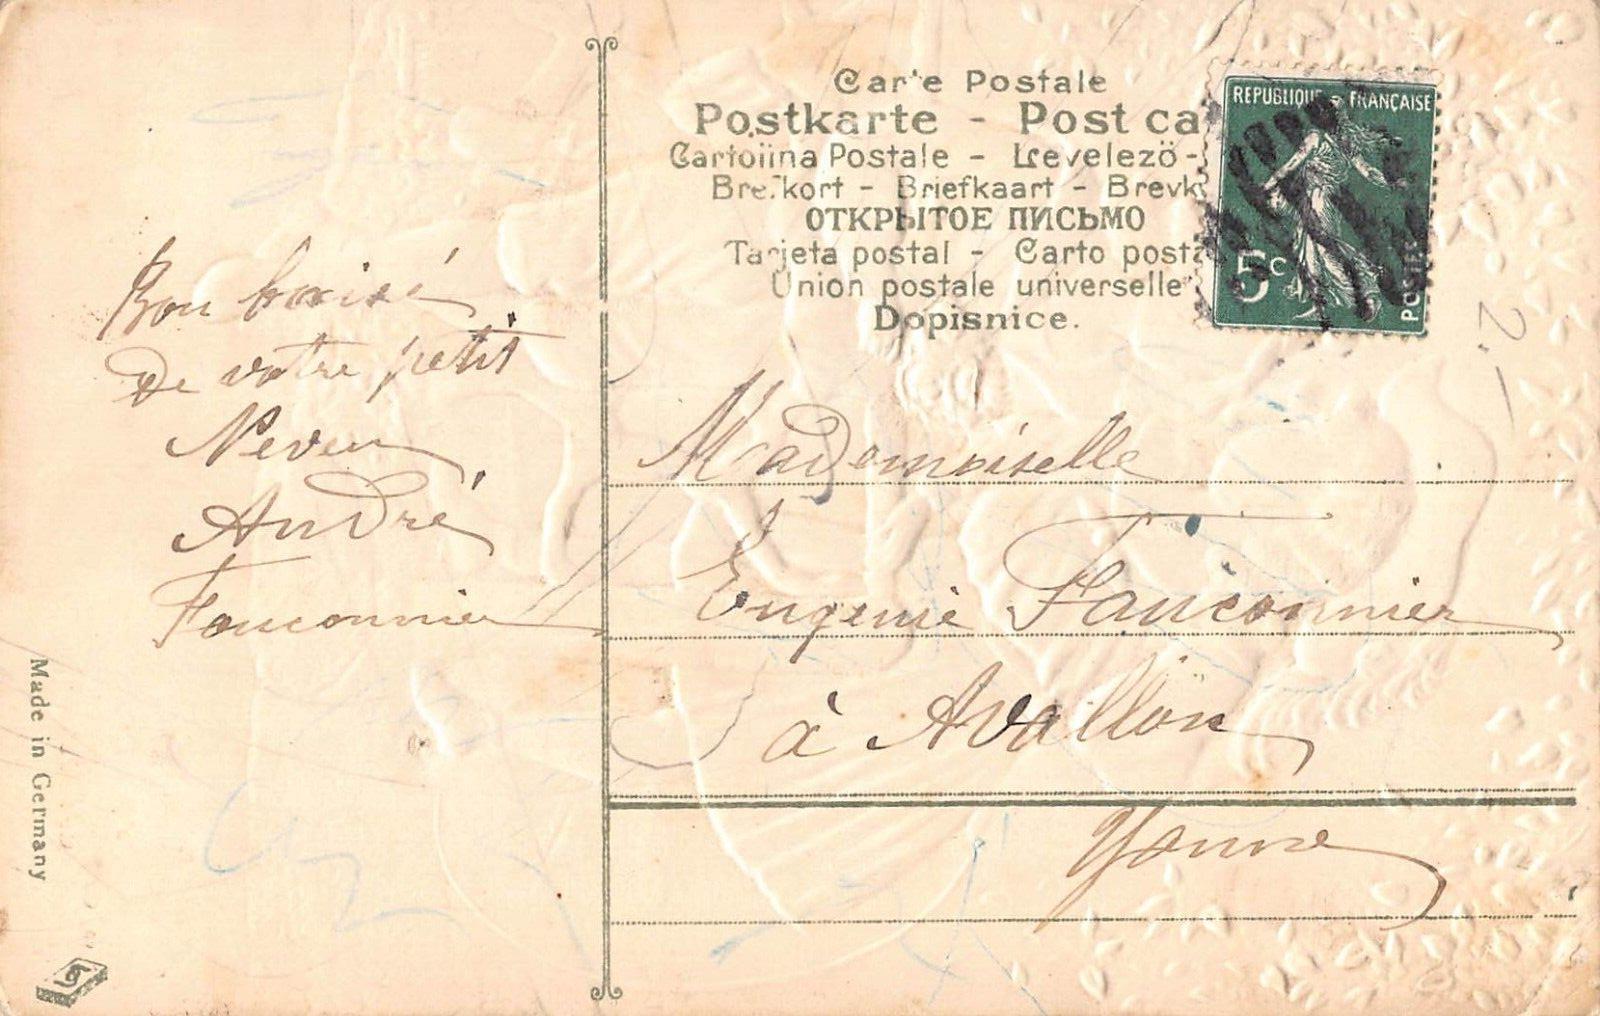 Carte Postale
Postkarte - Post ca
Cartolina Postale - Levelező -
Brefkort - Briefkaart - Brevk
ОТКРЫТОЕ ПИСЬМО
Tarjeta postal - Carto posta
Union postale universelle
Dopisnice.
REPUBLIQUE FRANÇAISE
5c
POSTES
2.-
Bon baisé
De votre petit
Neveu
André
Fauconnier
Mademoiselle
Eugenie Fauconnier
à Avallon
Yonne
Made in Germany